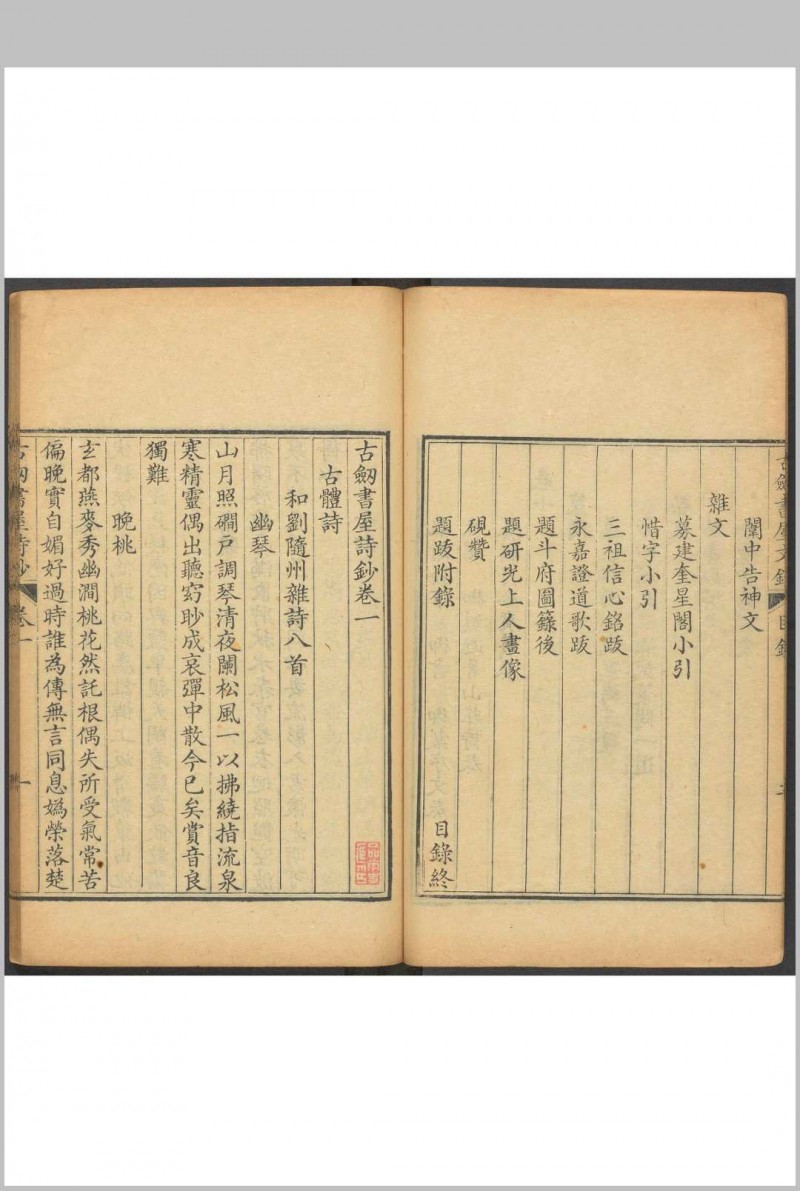 闈中告神文
雜文
募建奎星閣小引
惜字小引
三祖信心銘跋
永嘉證道歌跋
題斗府圖籙後
題研光上人畫像
硯贊
題跋附錄 目錄終
古劒書屋詩鈔卷一
古體詩
和劉隨州雜詩八首
幽琴
山月照磵戶調琴清夜闌松風一以拂繞指流泉
寒精靈偶出聽窈眇成哀彈中散今已矣賞音良
獨難
晚桃
玄都燕麥秀幽澗桃花然託根偶失所受氣常苦
偏晚實自媚好過時誰為傳無言同息媯榮落楚
古劒書屋詩鈔 卷一 一